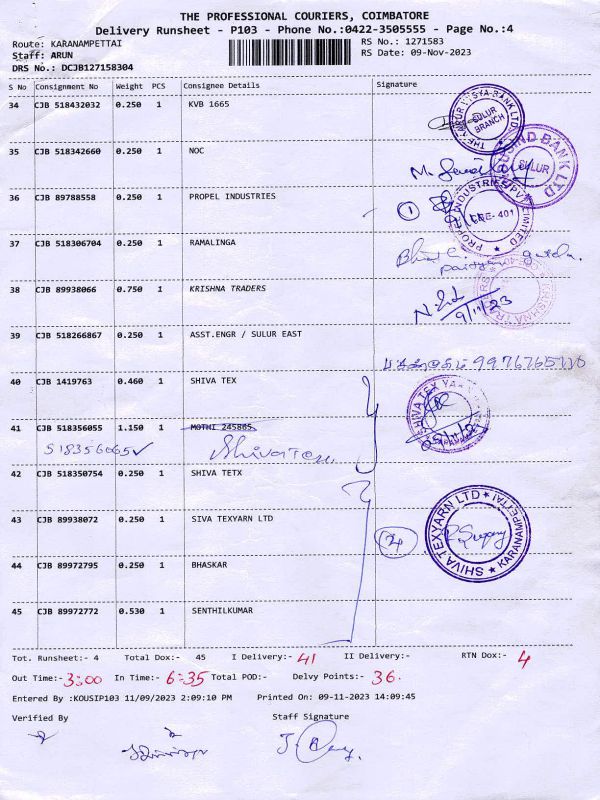 THE PROFESSIONAL COURIERS, COIMBATORE
Delivery Runsheet - P103 - Phone No.:0422-3505555 - Page No.:4
Route: KARANAMPETTAI RS No.: 1271583
Staff: ARUN RS Date: 09-Nov-2023
DRS No.: DCJB127158304
S No Consignment No Weight PCS Consignee Details Signature
34 CJB 518432032 0.250 1 KVB 1665
SULUR BRANCH
35 CJB 518342660 0.250 1 NOC
SULUR
36 CJB 89788558 0.250 1 PROPEL INDUSTRIES
1
37 CJB 518306704 0.250 1 RAMALINGA
38 CJB 89938066 0.750 1 KRISHNA TRADERS
9/11/23
39 CJB 518266867 0.250 1 ASST.ENGR / SULUR EAST
40 CJB 1419763 0.460 1 SHIVA TEX
SHIVA TEX YARN
41 CJB 518356055 1.150 1 MOTHI 245865
518356065✓ Shivatex
42 CJB 518350754 0.250 1 SHIVA TETX
43 CJB 89938072 0.250 1 SIVA TEXYARN LTD
SHIVA TEXYARN LTD KARANAMPETTAI
44 CJB 89972795 0.250 1 BHASKAR
45 CJB 89972772 0.530 1 SENTHILKUMAR
Tot. Runsheet:- 4 Total Dox:- 45 I Delivery:- 41 II Delivery:- RTN Dox:- 4
Out Time:- 3:00 In Time:- 6:35 Total POD:- Delvy Points:- 36.
Entered By :KOUSIP103 11/09/2023 2:09:10 PM Printed On: 09-11-2023 14:09:45
Verified By Staff Signature